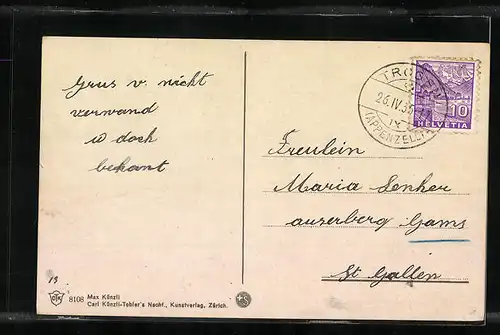 Grus v. nicht
verwand
u doch
bekant
TROGEN
26.IV.3
(APPENZELL)
10
HELVETIA
Freulein
Maria Lenher
auserberg Gams
St Gallen
13
8108 Max Künzli
Carl Künzli-Tobler's Nachf., Kunstverlag, Zürich.